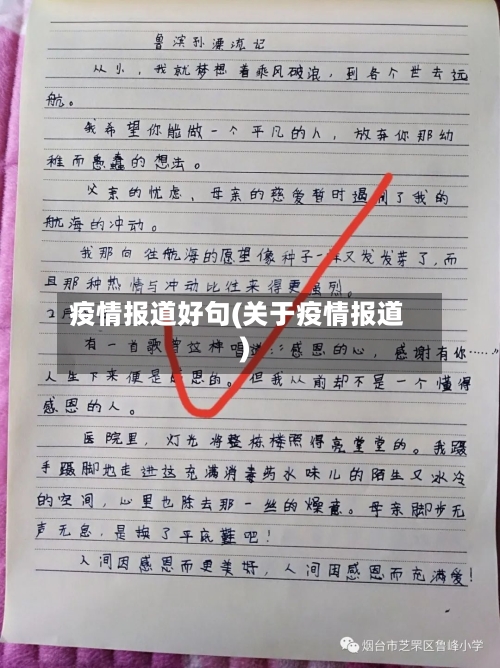 鲁滨孙漂流记
从小，我就梦想着乘风破浪，到各个世去远
航。
我希望你能做一个平凡的人，放弃你那幼
稚而愚蠢的想法。
父亲的忧虑，母亲的慈爱暂时遏制了我的
航海的冲动。
我那向往航海的愿望像种子一样又发发芽了，而
且那种热情与冲动比往来得更强烈。
疫情报道好句(关于疫情报道
)
有一首歌曾这样唱道：感恩的心，感谢有你……
人生下来便是感恩的。但我从前却不是一个懂得
感恩的人。
医院里，灯光将整栋楼照得亮堂堂的。我蹑
手蹑脚地走进这充满消毒药水味儿的陌生又冰冷
的空间，心里也除去那一丝的燥意。母亲脚步无
声无息，是换了平底鞋吧！
人间因感恩而更美好，人间因感恩而充满爱！
烟台市芝罘区鲁峰小学